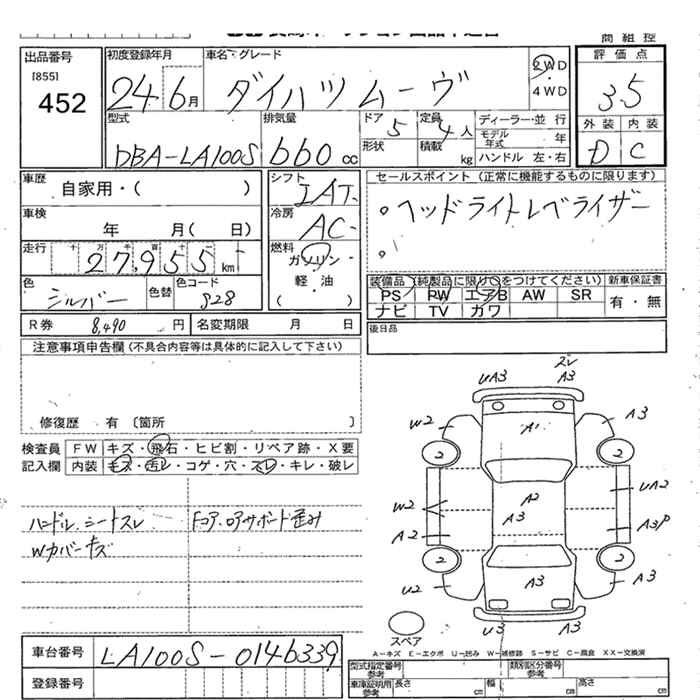 商 組 控
出品番号
[855]
452
初度登録年月
24 6月
車名・グレード
ダイハツ ムーヴ
2WD
4WD
評 価 点
3.5
外 装 内 装
D C
型式
DBA-LA100S
排気量
660 cc
ドア 5
形状
定員 4 人
積載 kg
ディーラー・並 行
モデル年式 年
ハンドル 左・右
車歴
自家用・( )
シフト
IAT
セールスポイント (正常に機能するものに限ります)
。ヘッドライトレベライザー
。
車検
年 月( 日)
冷房
AC
走行 十 万 千 百 十
27,955 km
燃料
ガソリン・
軽 ・ 油
( )
色
シルバー
色替
色コード
S28
装備品 (純製品に限り○をつけてください)
新車保証書
PS PW エアB AW SR
ナビ TV カワ
有 ・ 無
R券 8,490 円
名変期限 月 日
後日品
注意事項申告欄 (不具合内容等は具体的に記入して下さい)
修復歴 有 〔箇所 〕
検査員
記入欄
FW キズ・飛石・ヒビ割・リペア跡・X要
内装 キズ・汚レ・コゲ・穴・スレ・キレ・破レ
ハンドル、シートスレ
Wカバーキズ
Fコア、ロアサポート歪み
UA3
スレ
A3
W2
A1
A3
2
2
A2
A3
W2
A2
UA2
A3P
2
2
U2
A3
A3
U3
A3
スペア
A-キズ E-エクボ U-凹み W-補修跡 S-サビ C-腐食 XX-交換済
車台番号
LA100S-0146339
登録番号
型式指定番号
参考
類別区分番号
参考
車庫証明用
参考
長さ cm 幅 cm 高さ cm